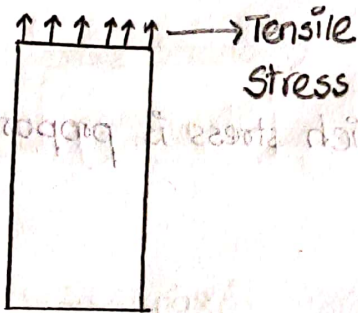 Tensile
Stress